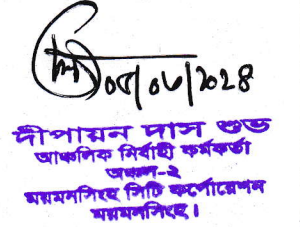 ০৫/০৬/২০২৪
দীপায়ন দাস শুভ
আঞ্চলিক নির্বাহী কর্মকর্তা
অঞ্চল-২
ময়মনসিংহ সিটি কর্পোরেশন
ময়মনসিংহ।